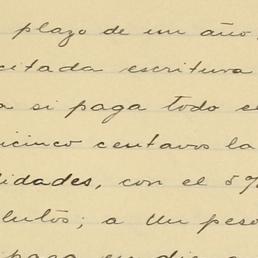 plazo de un año,
citada escritura
a si paga todo e
icinco centavos la
lidades, con el 5%
lutos; a un peso
paga en dia